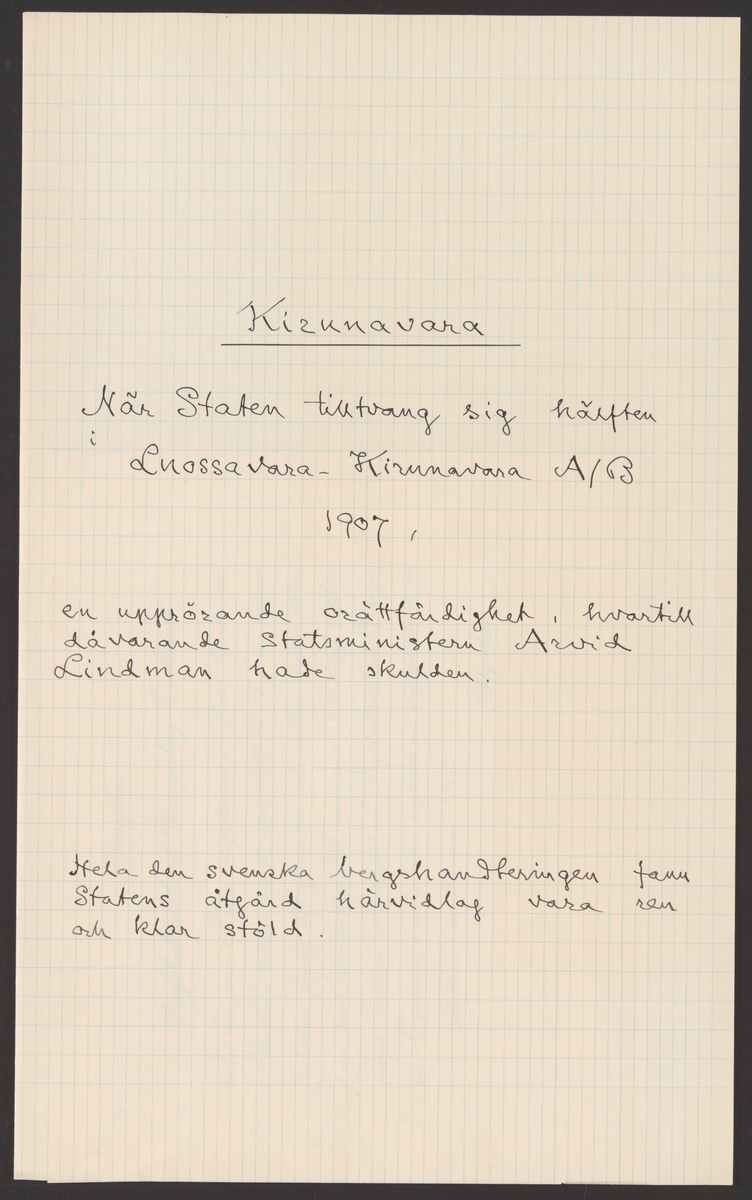 Kirunavara
När Staten tilltvang sig hälften
i Luossavara - Kirunavara A/B
1907,
en upprörande orättfärdighet, hvartill
dåvarande statsministern Arvid
Lindman hade skulden.
Hela den svenska bergshandteringen fann
Statens åtgärd härvidlag vara ren
och klar stöld.